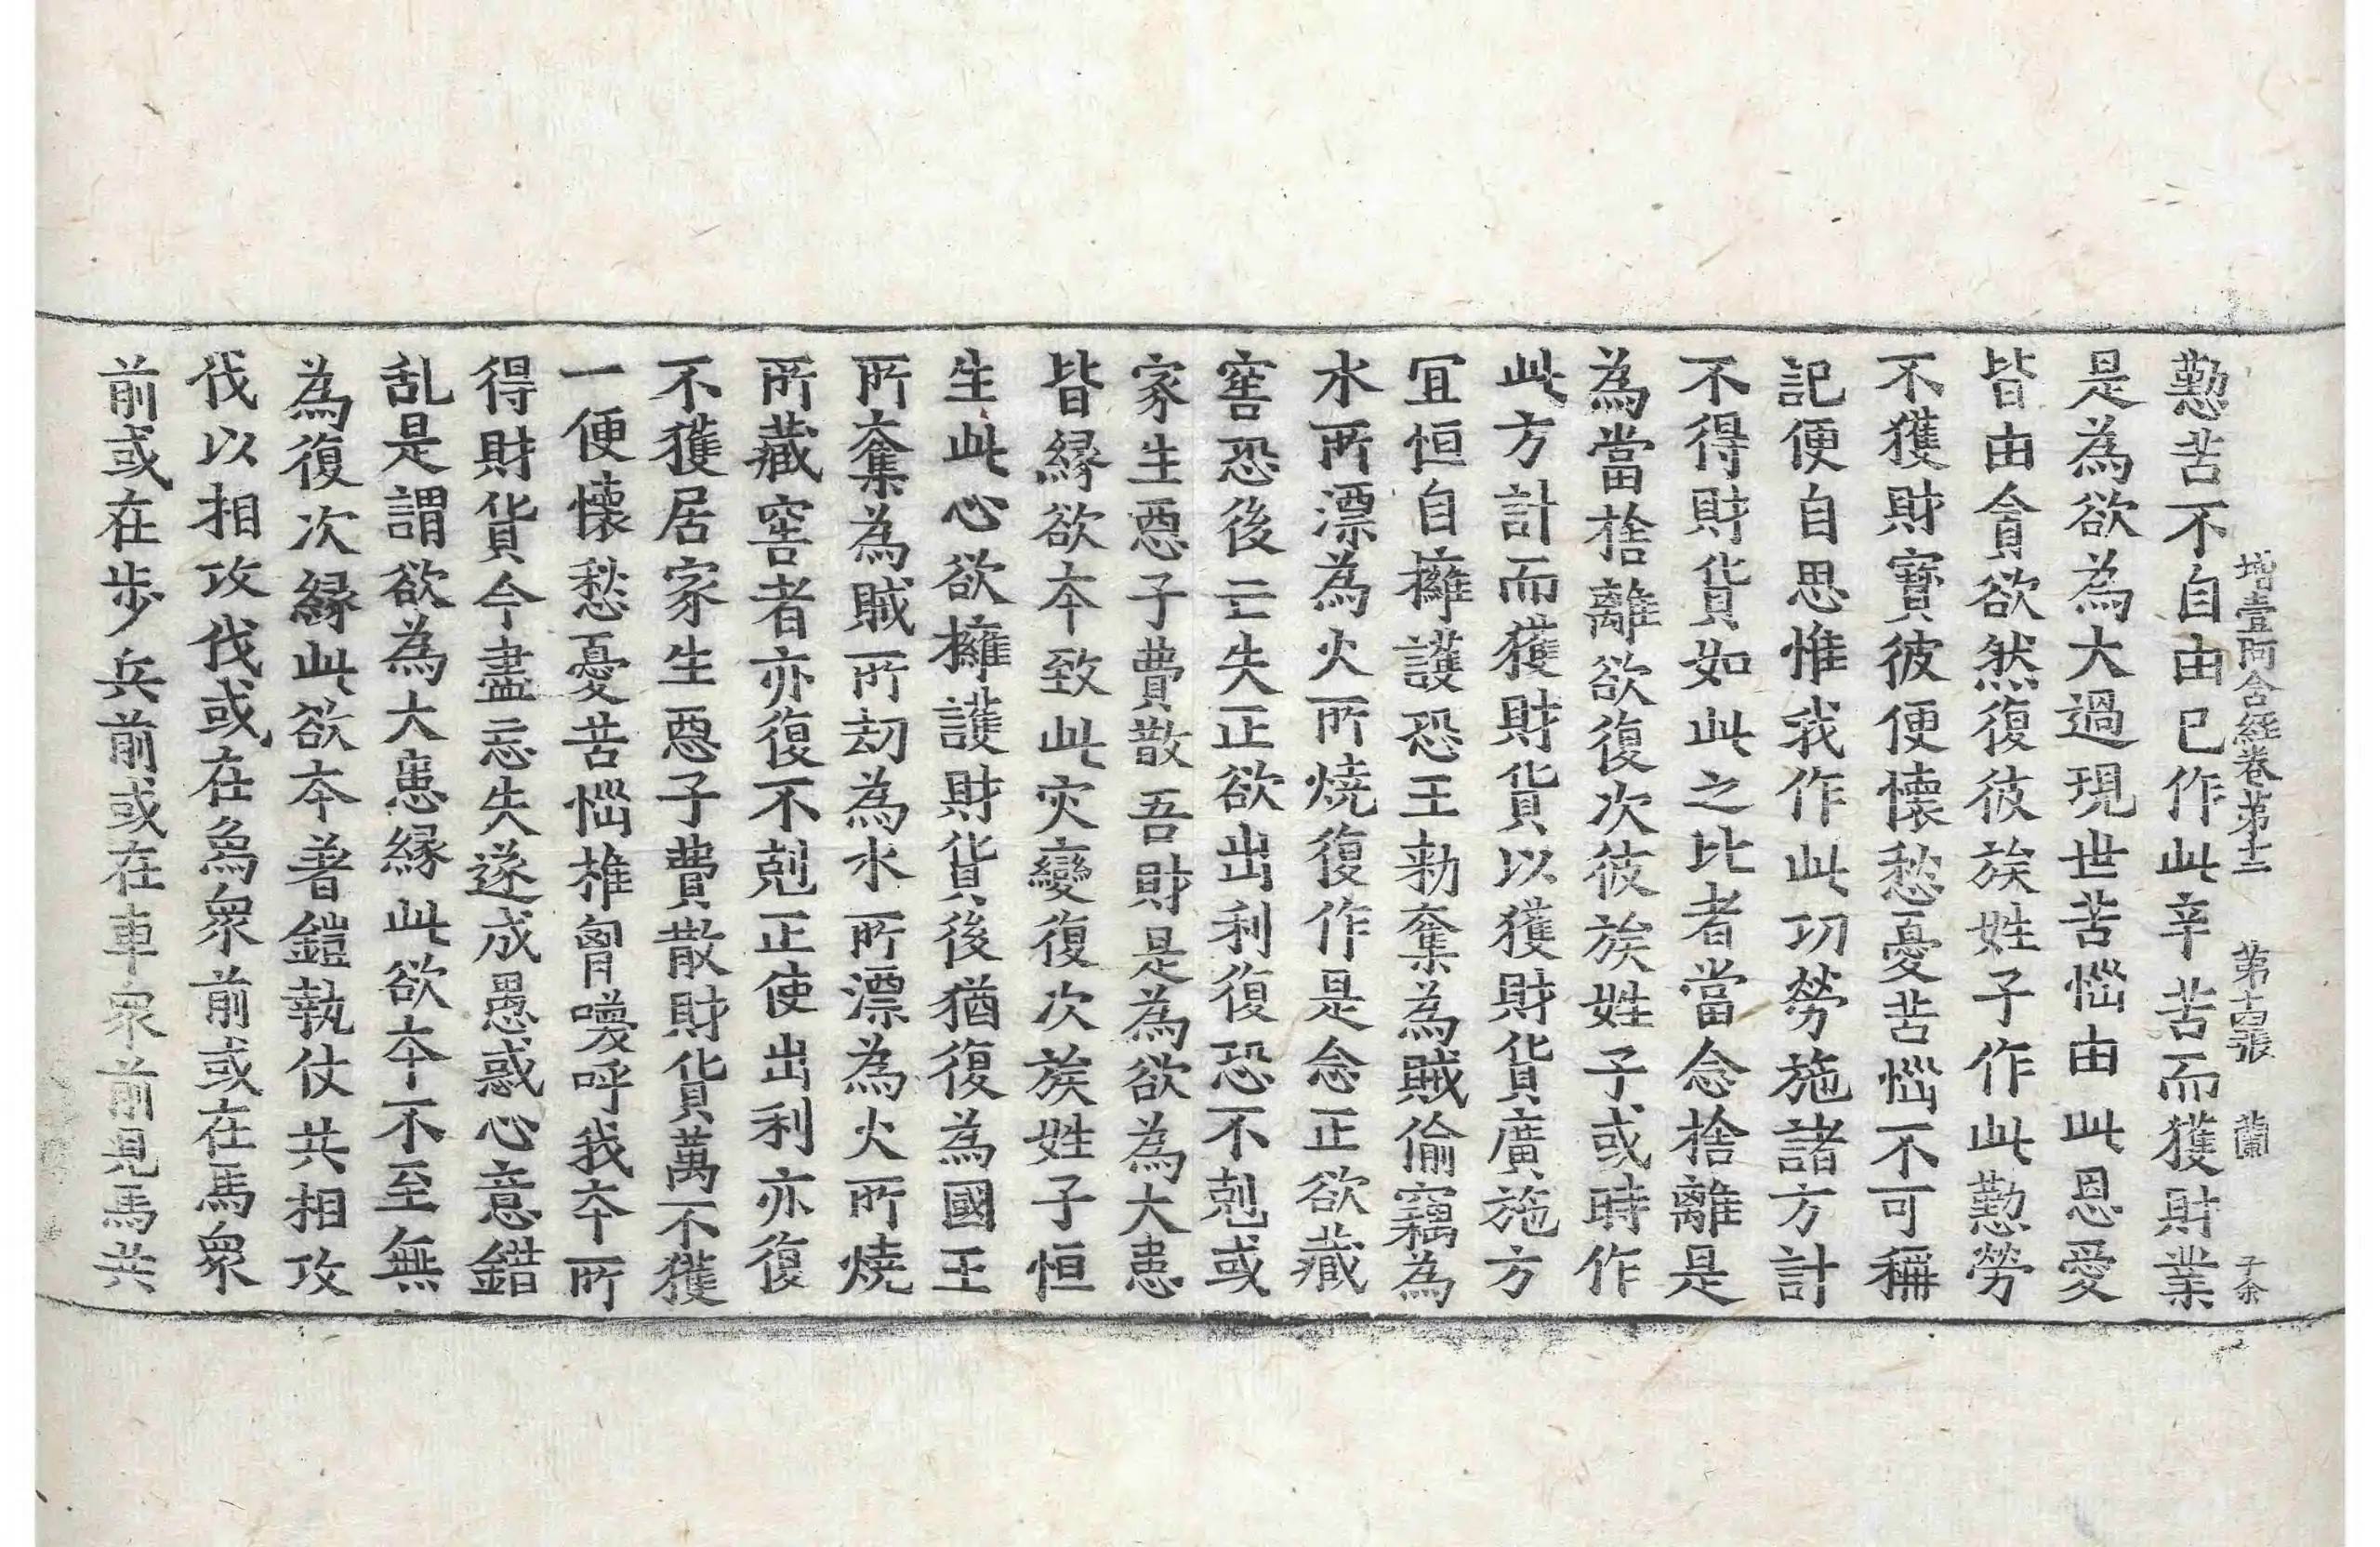 增壹阿含經卷第十二　第十四張　蘭　子余
懃苦不自由已作此辛苦而獲財業
是為欲為大過現世苦惱由此恩愛
皆由貪欲然復彼族姓子作此懃勞
不獲財寶彼便懷愁憂苦惱不可稱
記便自思惟我作此功勞施諸方計
不得財貨如此之比者當念捨離是
為當捨離欲復次彼族姓子或時作
此方計而獲財貨以獲財貨廣施方
冝恒自擁護恐王勑奪為賊偷竊為
水所漂為火所燒復作是念正欲藏
窖恐後亡失正欲出利復恐不剋或
家生惡子費散吾財是為欲為大患
皆緣欲夲致此灾變復次族姓子恒
生此心欲擁護財貨後猶復為國王
所奪為賊所刧為水所漂為火所燒
所藏窖者亦復不剋正使出利亦復
不獲居家生惡子費散財貨萬不獲
一便懷愁憂苦惱椎胷喚呼我夲所
得財貨今盡忘失遂成愚惑心意錯
乱是謂欲為大患緣此欲夲不至無
為復次緣此欲夲著鎧執仗共相攻
伐以相攻伐或在象衆前或在馬衆
前或在步兵前或在車衆前見馬共